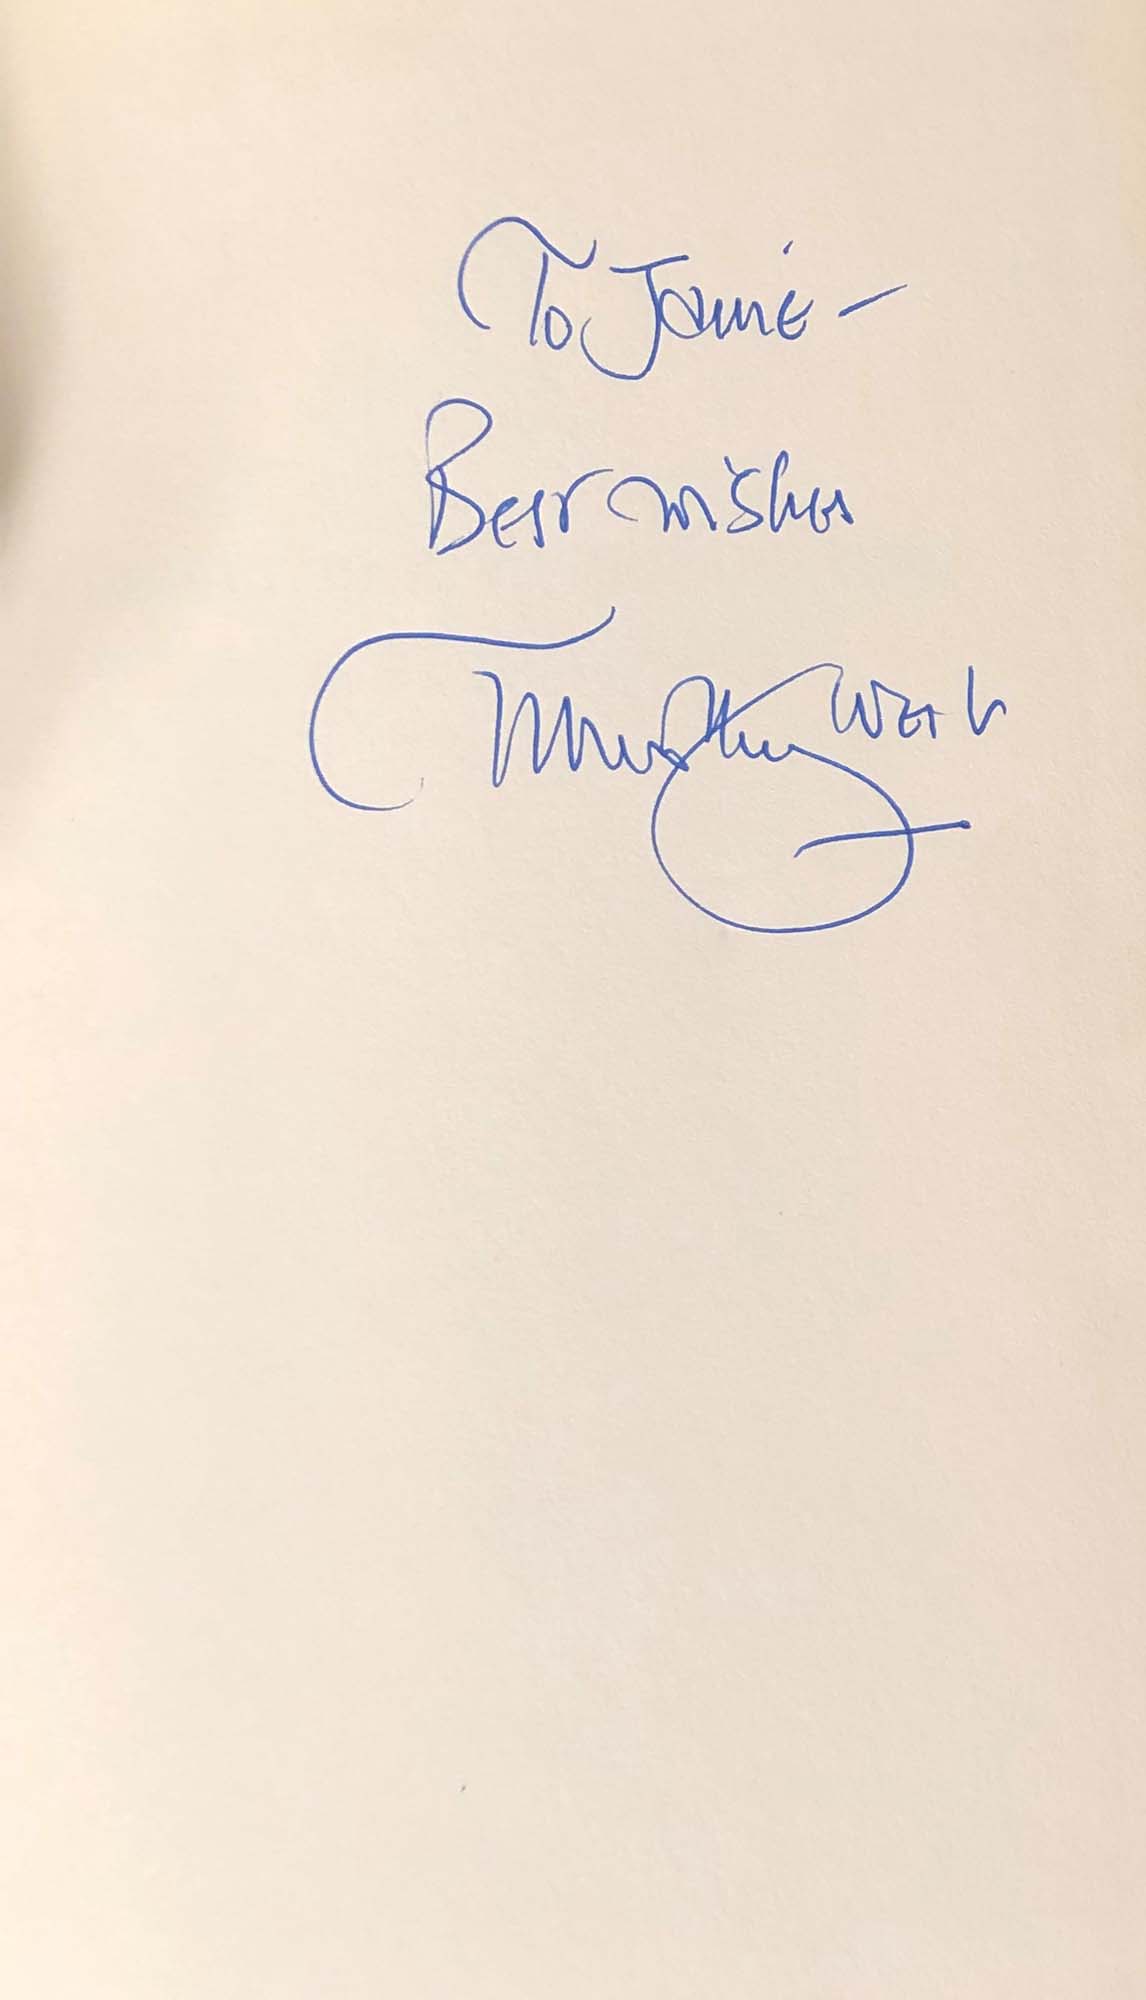 To Jamie -
Best wishes